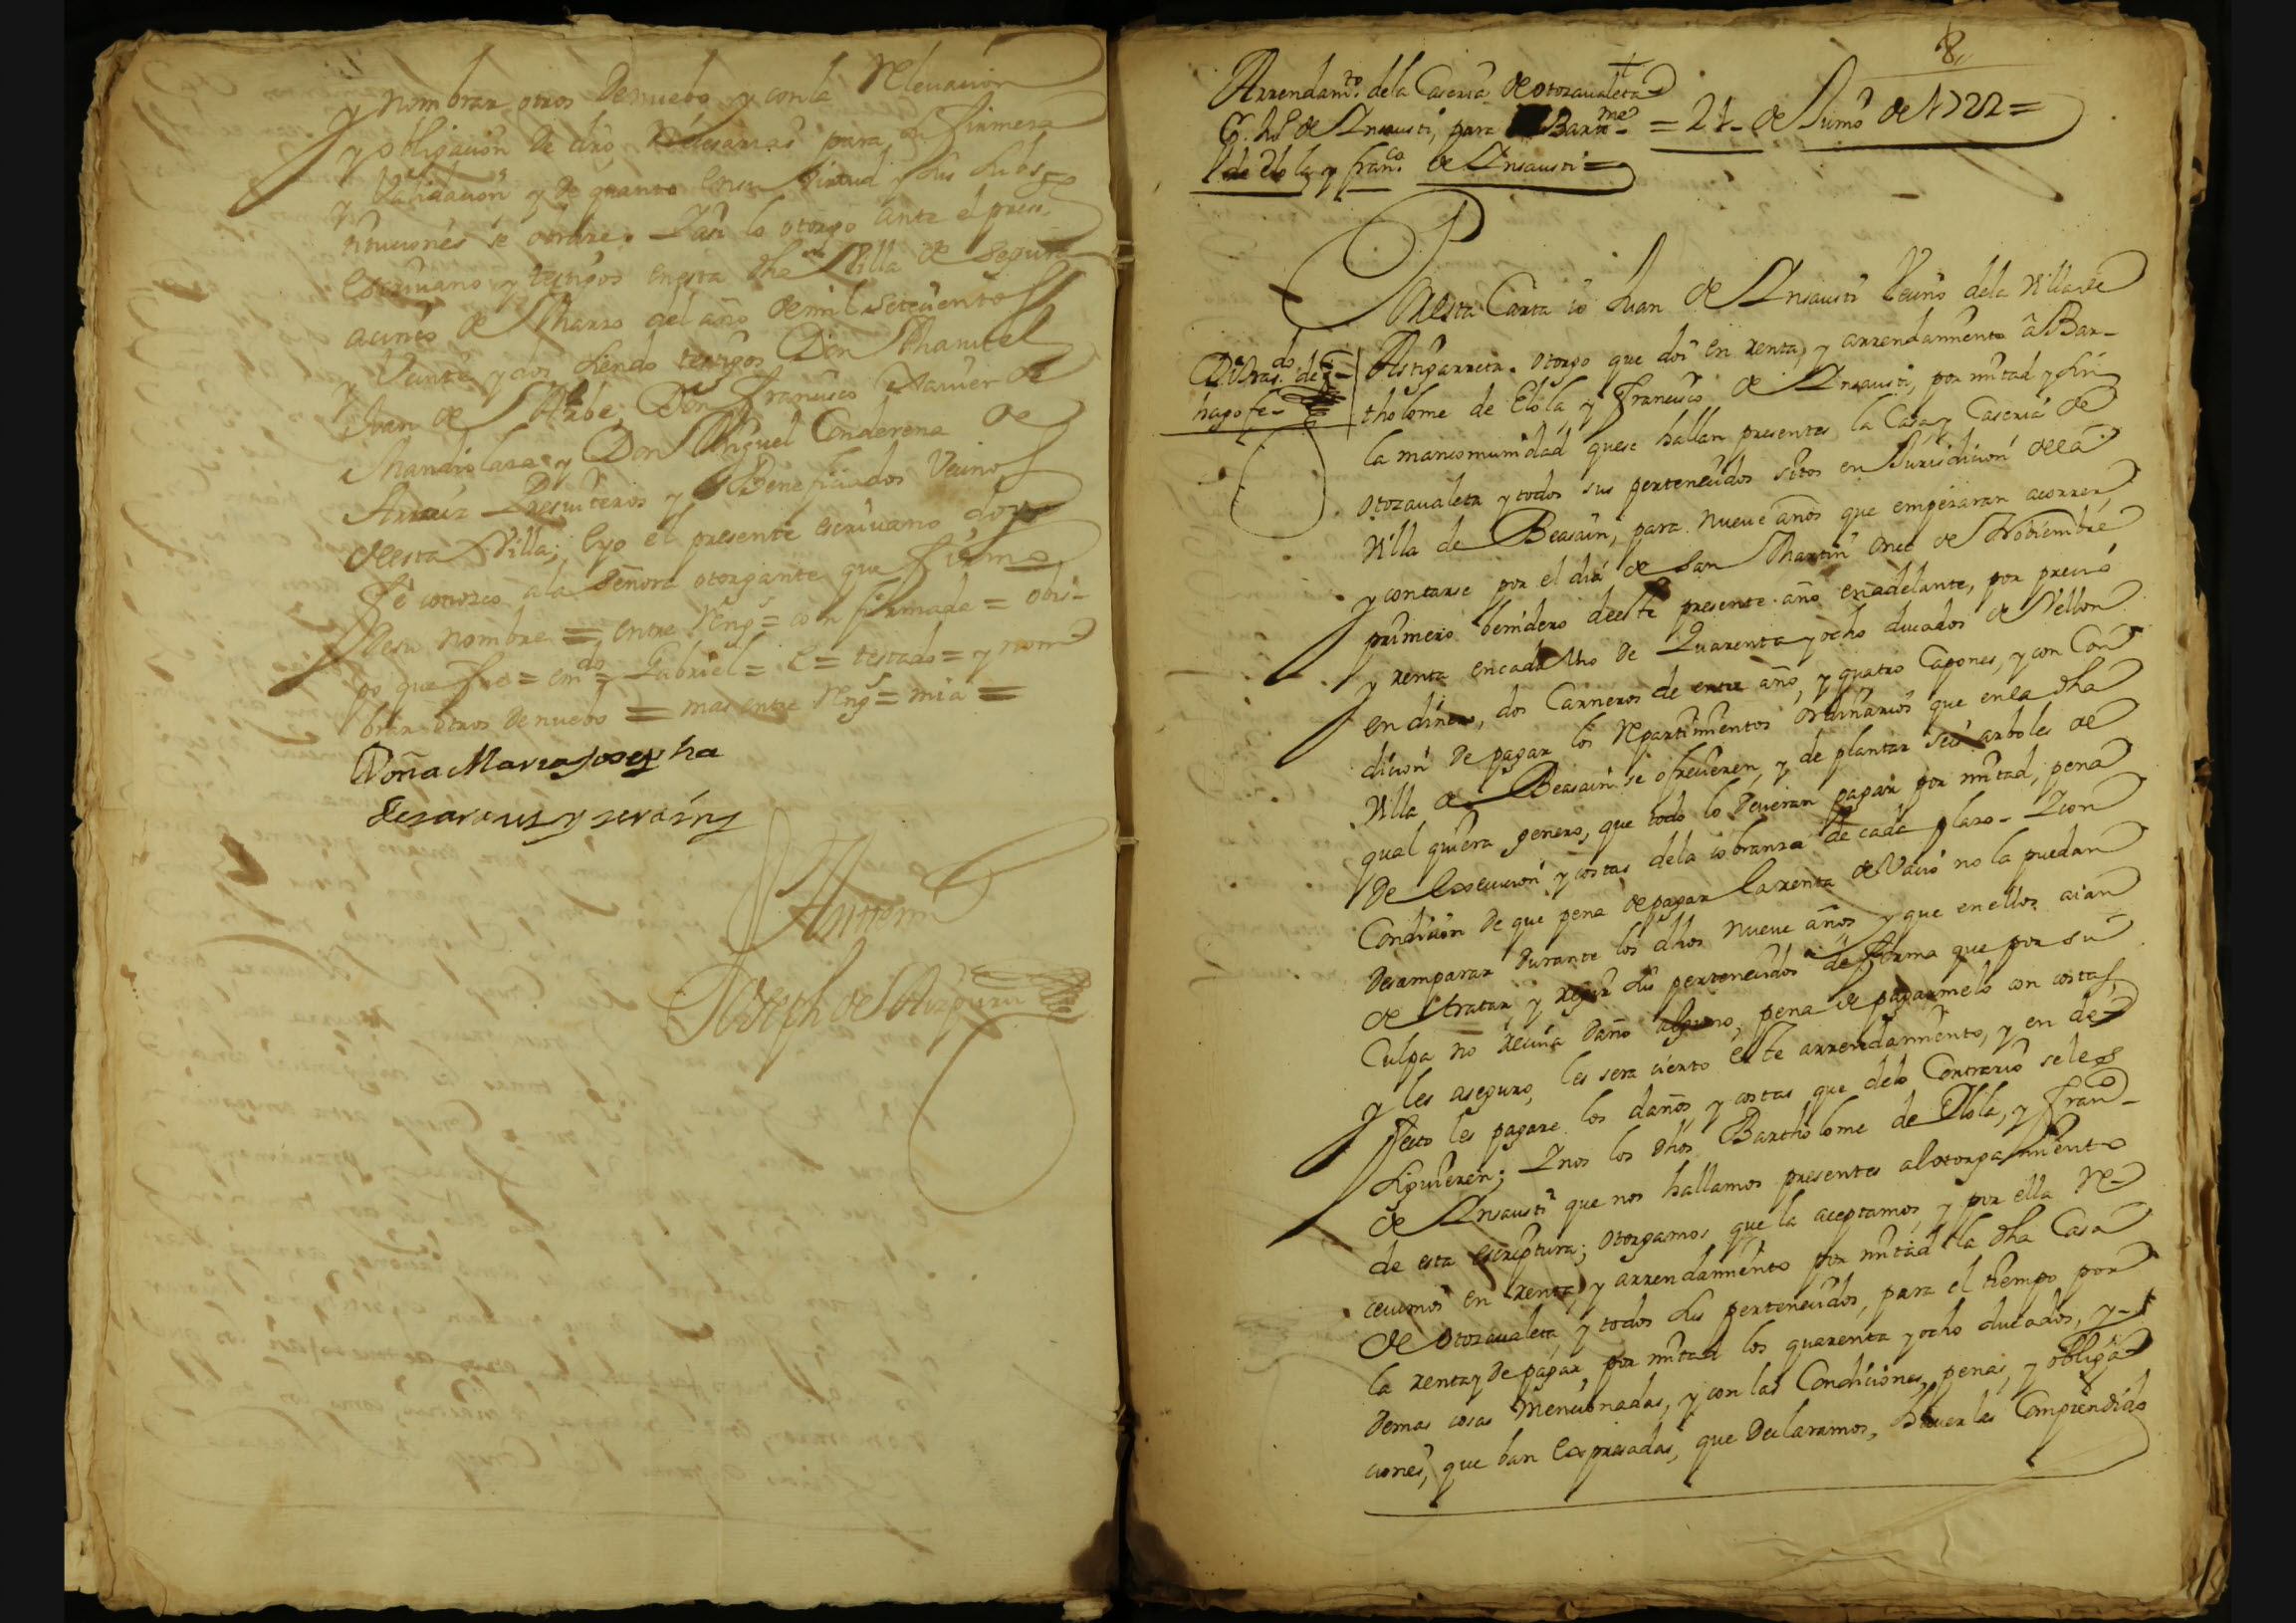 y nombrar otros Denuebo y con la Relevacion
y obligacion De dro. Nesesarias para su firmeza
y Validacion y de quanto en su Virtud y sus subs-
tituciones se obrare. Y asi lo otorgo ante el press.te
Escrivano y testigos en esta dha Villa de Segura
a cinco de Marzo del año de mil Setecientos
y Veinte y dos siendo testigos Don Manuel
Juan de Yarbe, Don Francisco Xavier de
Mandiolaza y Don Miguel Conderena de
Arraiz Presviteros y Beneficiados Vecinos
de esta Villa; e yo el presente escrivano doy
fe conozco a la Señora otorgante que firmo
de su nombre = entre Reng.s = confirmada = obis-
po que fue = em.do = Gabriel = e = testado = y nom
brar otros Denuebo = mas entre Reng.s = mia =
Doña Maria Josepha
Antemi
Joseph de
8
Arrendam.to de la Caseria de otozavaleta
de Insausti, para Barr.me = 21 - de Junio de 1722 =
de Elola, y fran.co de Insausti =
Por esta Carta io Juan de Insausti Vecino de la Villa de
Astigarreta. otorgo que doi en renta, y arrendamiento â Bar-
tholome de Elola, y Francisco de Insausti, por mitad y sin
la mancomunidad que se hallan presentes la Casa y Caseria de
otozavaleta y todos sus pertenecidos sitos en Jurisdicion de la
Villa de Beasain, para nueve años que empezaran a correr
y contarse por el dia de San Martin once de Nobiembre
primero benidero de este presente año en adelante, por precio
y renta en cada Año de Quarenta y ocho ducados de Vellon
en dinero, dos Carneros de entre año, y quatro Capones, y con Con
dicion de pagar los Repartimientos ordinarios que en la dha
Villa de Beasain se ofrecieren, y de plantar seis arboles de
qual quiera genero, que todo lo Deveran pagar por mitad, pena
de Execucion y costas de la cobranza de cada plazo - Y con
Condicion De que pena de pagar la renta de Vacio no la puedan
Desamparar Durante los dhos nueve años y que en ellos aian
de tratar, y regir sus pertenecidos de forma que por su
Culpa no reciva Daño alguno, pena de pagarmelo con costas
y les aseguro, les sera cierto este arrendamiento, y en de-
fecto les pagare los daños, y costas que delo Contrario seles
siguieren; Y nos los dhos Bartholome de Elola, y fran.co
de Insausti que nos hallamos presentes al otorgamiento
de esta escriptura; otorgamos que la aceptamos, y por ella Re-
cevimos en renta, y arrendamiento por mitad la dha Casa
de otozavaleta, y todos sus pertenecidos, para el tiempo por
la renta, y De pagar, por mitad los quarenta y ocho ducados, y
Demas cosas Mencionadas, y con las Condiciones, penas, y obliga
ciones, que ban Expresadas, que Declaramos, haver las Comprendido